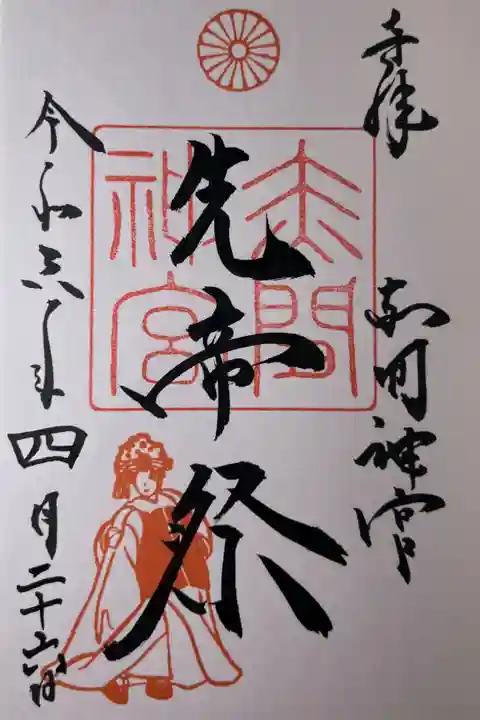 奉拝
赤間神宮
先帝祭
赤間
神宮
令和六年四月二十六日